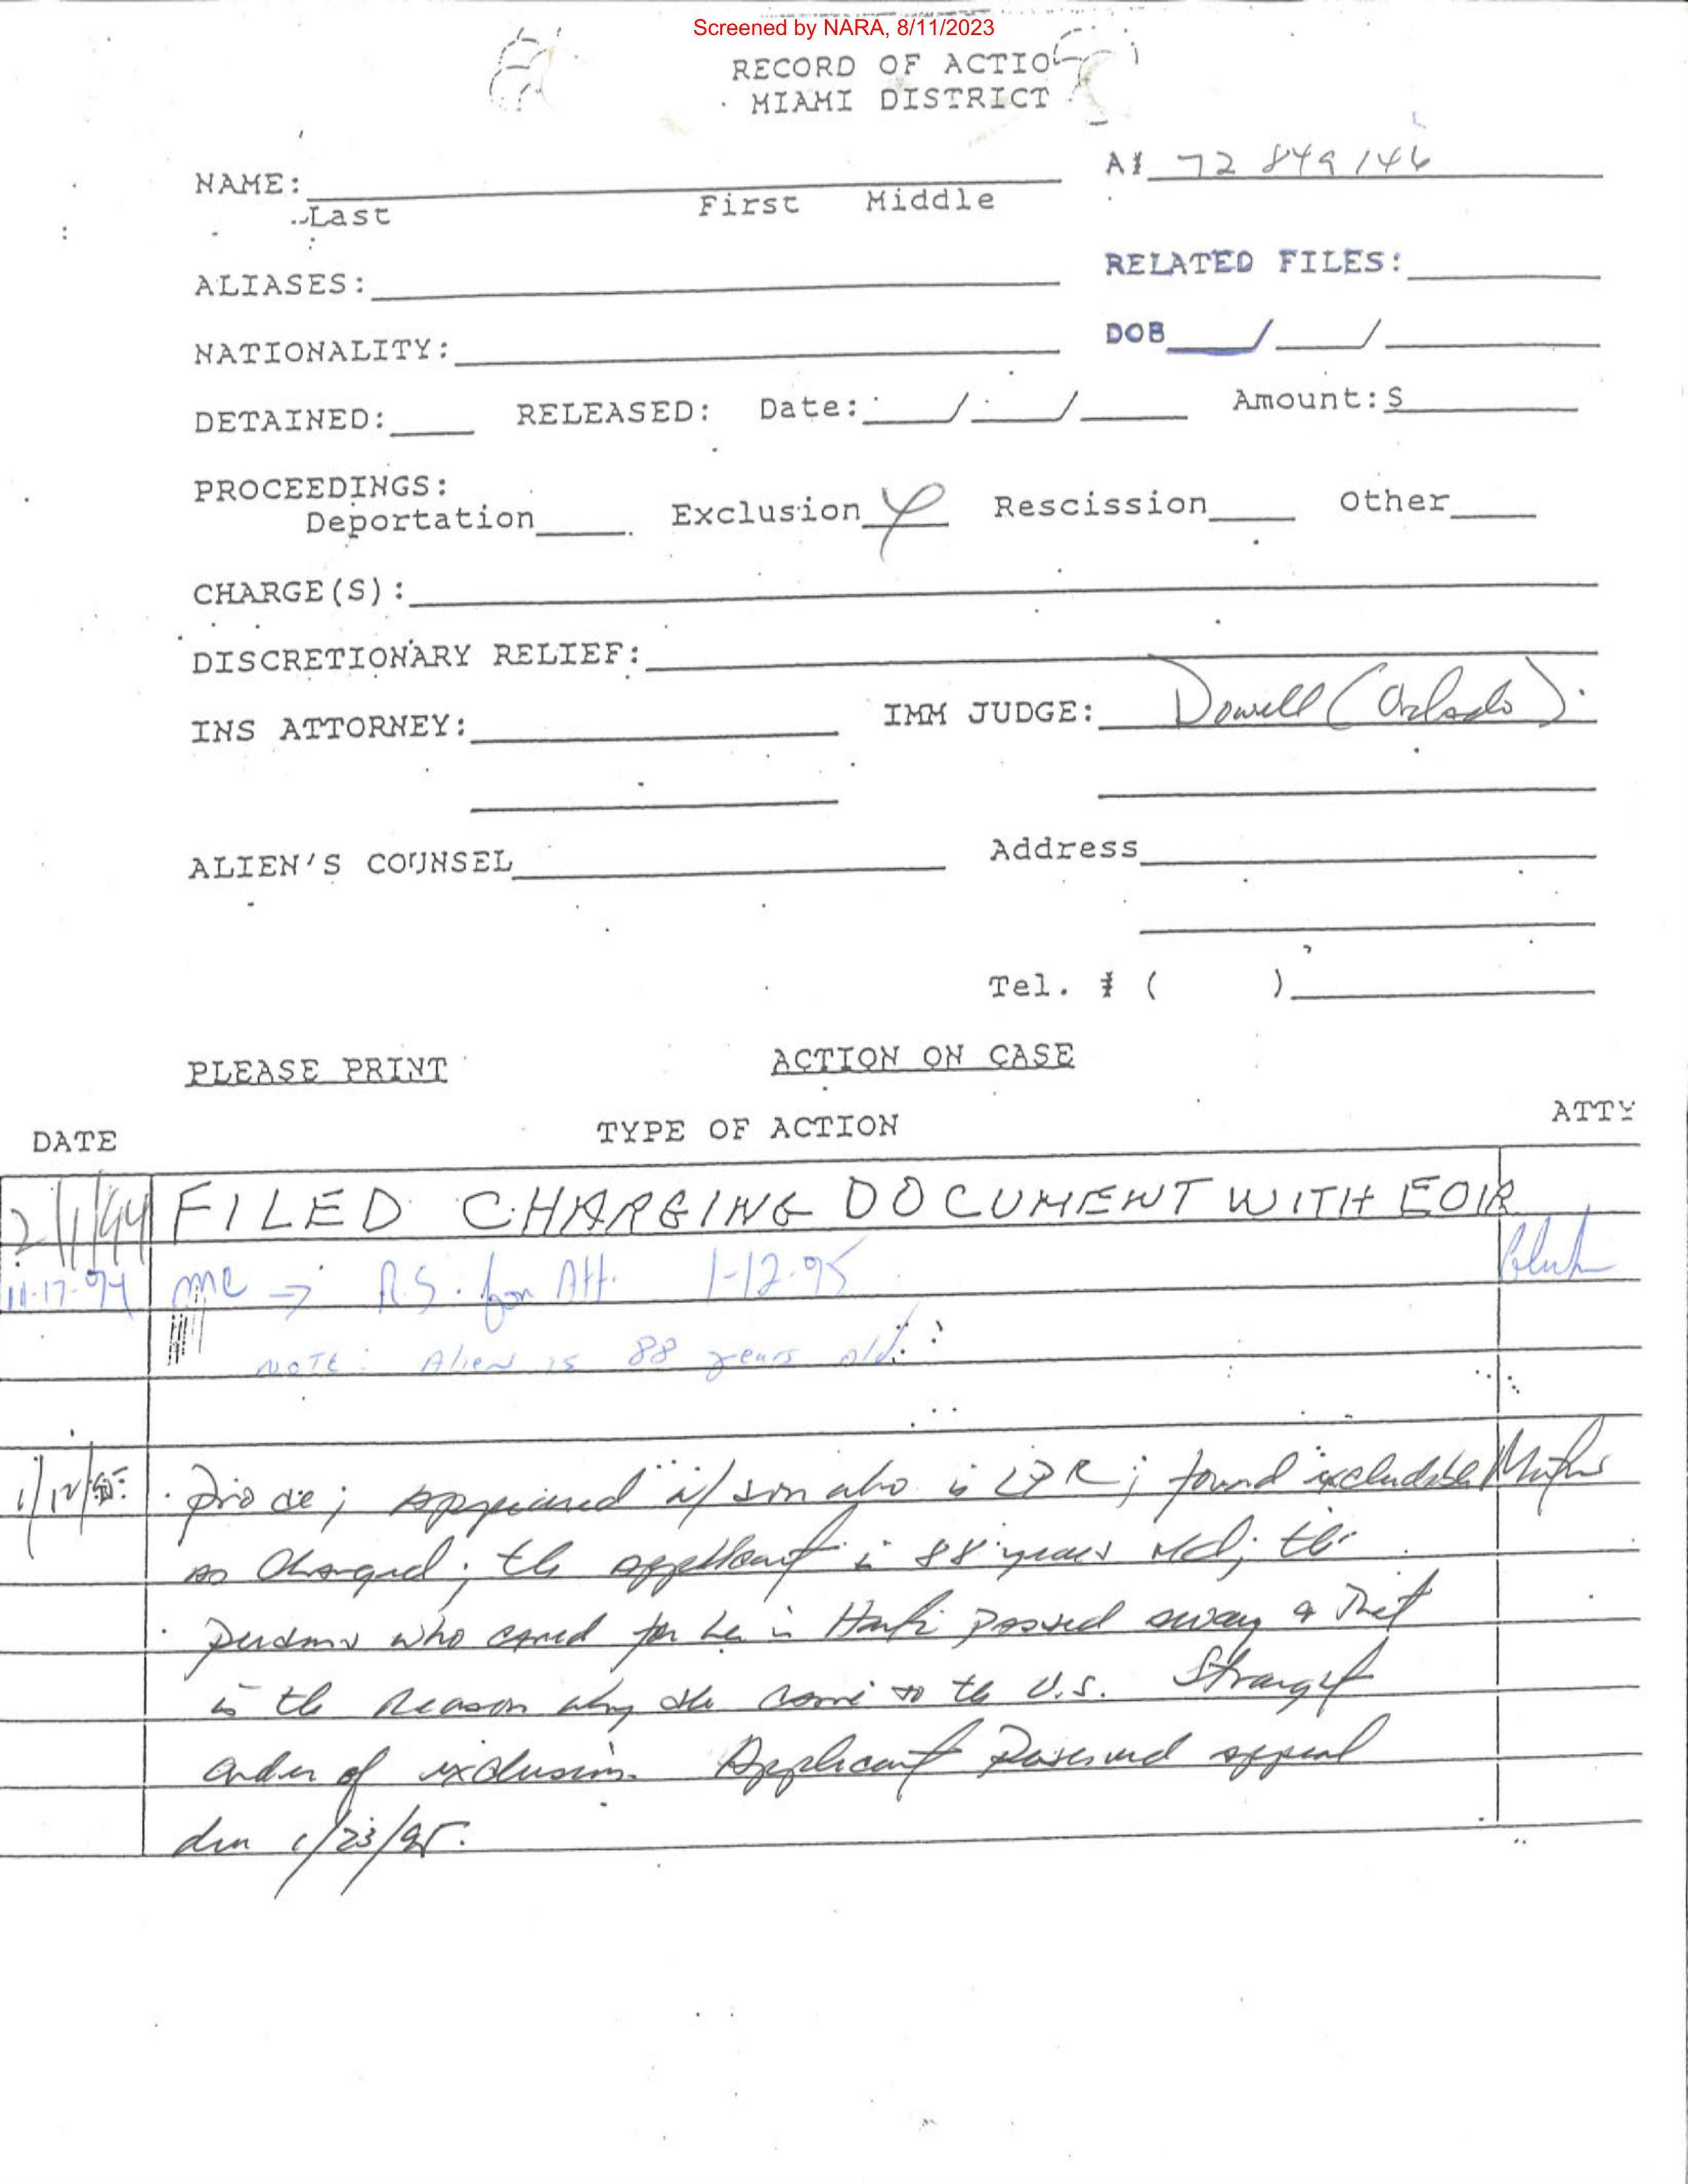 Screened by NARA, 8/11/2023
RECORD OF ACTIO
MIAMI DISTRICT
A# 72 849 146
NAME:
Last First Middle
RELATED FILES:
ALIASES:
DOB / /
NATIONALITY:
DETAINED: RELEASED: Date: / / Amount:$
PROCEEDINGS:
Deportation Exclusion Rescission Other
CHARGE(S):
DISCRETIONARY RELIEF:
INS ATTORNEY: IMM JUDGE: Dowell (Orlando)
ALIEN'S COUNSEL Address
Tel. # ( )
PLEASE PRINT ACTION ON CASE
DATE TYPE OF ACTION ATTY
2/1/94 FILED CHARGING DOCUMENT WITH EOIR
11-17-94 MC → R.S. for Att. 1-12-95
NOTE: Alien is 88 years old.
1/12/95 pro se; appeared w/ son who is LPR; found excludable
as charged; the applicant is 88 years old; the
persons who cared for her in Haiti passed away & that
is the reason why she came to the U.S. Straight
order of exclusion. Applicant reserved appeal
due 1/23/95.